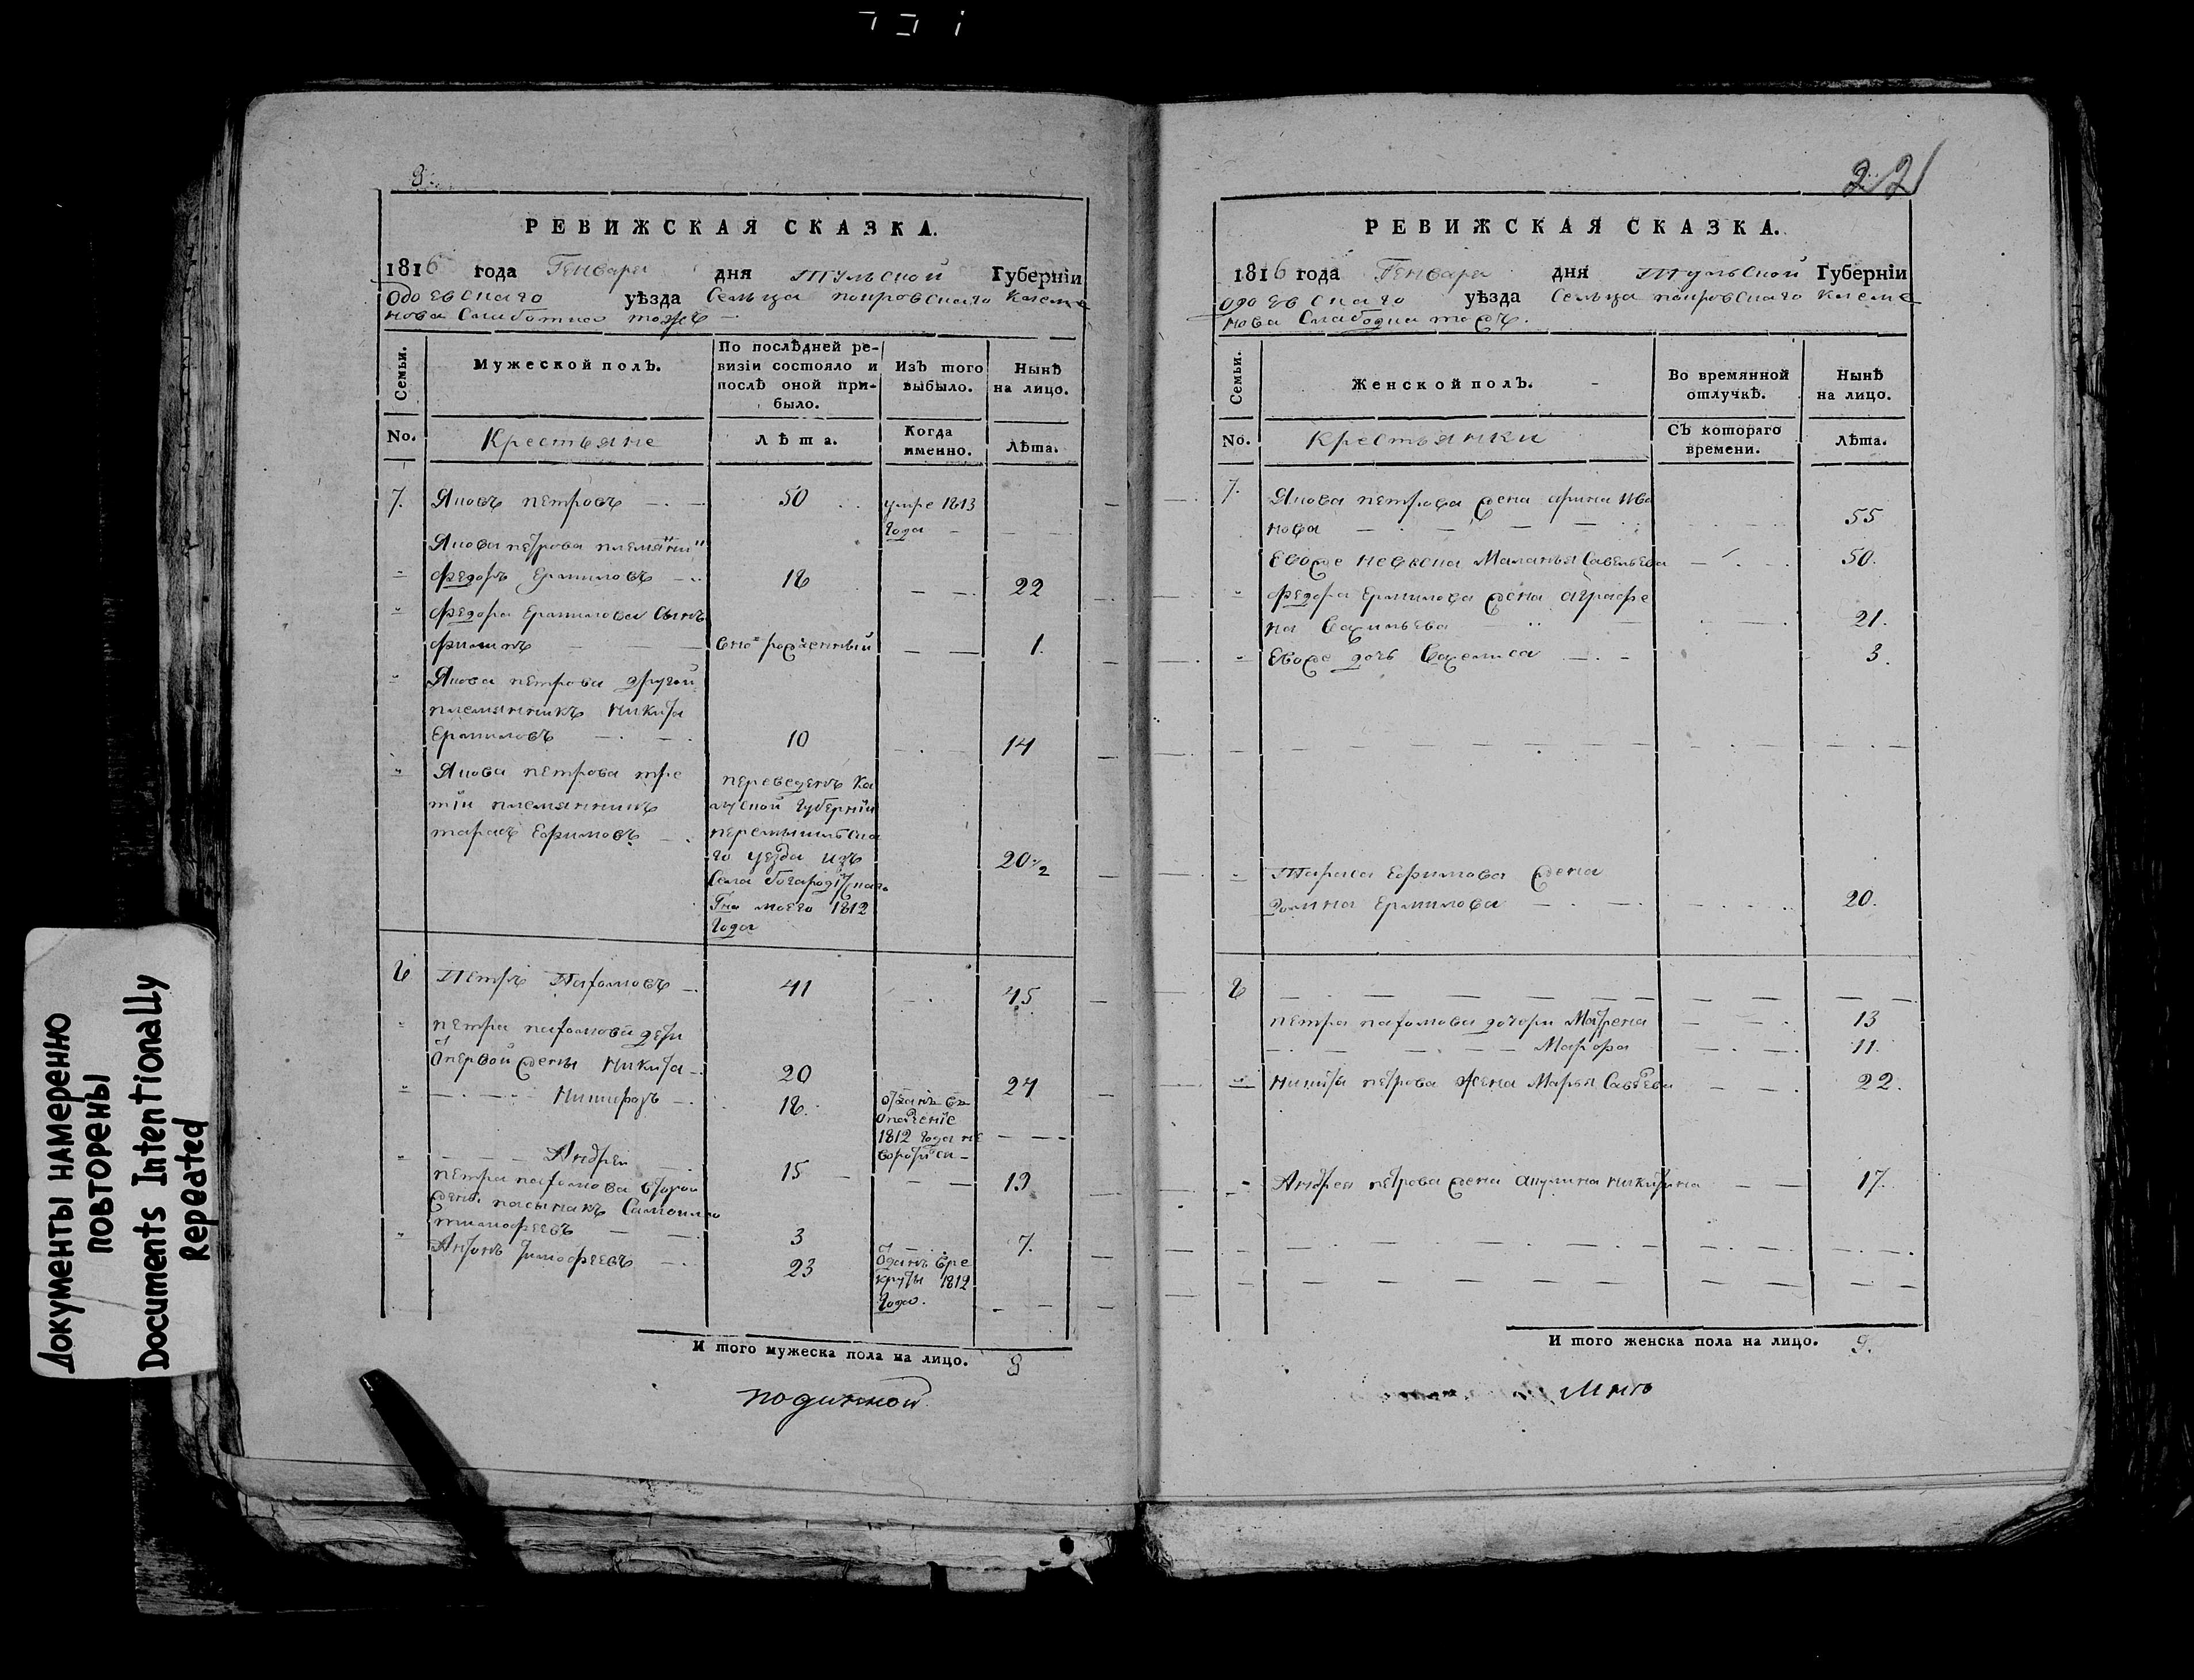 Документы намеренно
повторены
Documents Intentionally
Repeated
8.
РЕВИЖСКАЯ СКАЗКА.
1816 года Генваря дня Тульской Губерніи
Одоевскаго уѣзда Сельца покровскаго Клеме
нова Слаботка тожъ
Семьи.
Мужеской полъ.
По послѣдней ре-
визіи состояло и
послѣ оной при-
было.
Изъ того
выбыло.
Нынѣ
на лицо.
No.
Крестьяне
Лѣта.
Когда
именно.
Лѣта.
7. Яковъ петровъ 50 умре 1813
года
Якова петрова племянни
федоръ Ермиловъ 18 22
федора Ермилова Сынъ
филипъ вно рожденный 1.
Якова петрова другой
племянникъ никита
Ермиловъ 10 14
Якова петрова тре
тій племянникъ
тарасъ Ефимовъ
переведенъ Ка
лужской губерніи
перемышльска
го уезда изъ
Села
моего 1812
года
20 1/2
8 Петръ Патаповъ 41 45
петра патапова дети
Отпервой жены Никита 20 24
Никифоръ 18
отданъ въ
ополчение
1812 года не
воротился
Андрей 15 19
петра патапова второй
жены пасынакъ Самоила
тимофеевъ 3 7.
Антонъ тимофеевъ 23
Отданъ вре
круты 1812
года.
И того мужеска пола на лицо. 8
221
РЕВИЖСКАЯ СКАЗКА.
1816 года Генваря дня Тульской Губерніи
Одоевскаго уѣзда Сельца покровскаго Клеме
нова Слабодка тожъ.
Семьи.
Женской полъ.
Во времянной
отлучкѣ.
Нынѣ
на лицо.
No.
Крестьянки
Съ котораго
времени.
Лѣта.
7. Якова петрова жена арина ива
нова 55
Евоже невеска Маланья Савельева 50.
федора Ермилова жена аграфе
на Васильева 21.
Евоже дочь Василиса 3.
Тараса Ефимова жена
Ермилова 20.
8
петра патапова дочери Матрена 13
Марфа 11.
Никиты петрова жена Марья 22.
Андрея петрова жена Акулина никитина 17.
И того женска пола на лицо. 9.